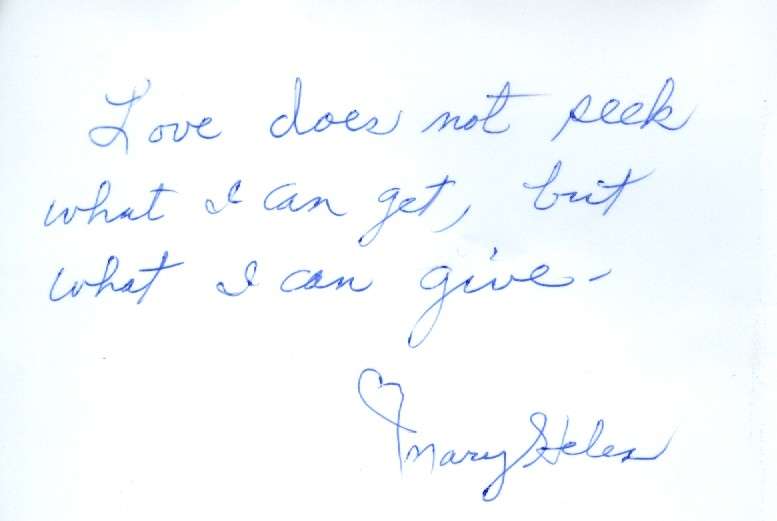 Love does not seek
what I can get, but
what I can give-
Mary Helen